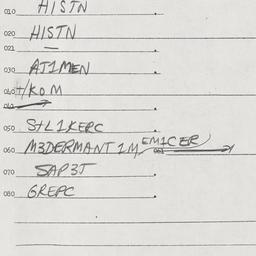 010 HISTN
020 HISTN
021 —
030 AT1MEN
040 +/KOM
050 S+L1KERC
060 M3DERMANT1M, EM1CER
070 SAP3T
080 GREPC